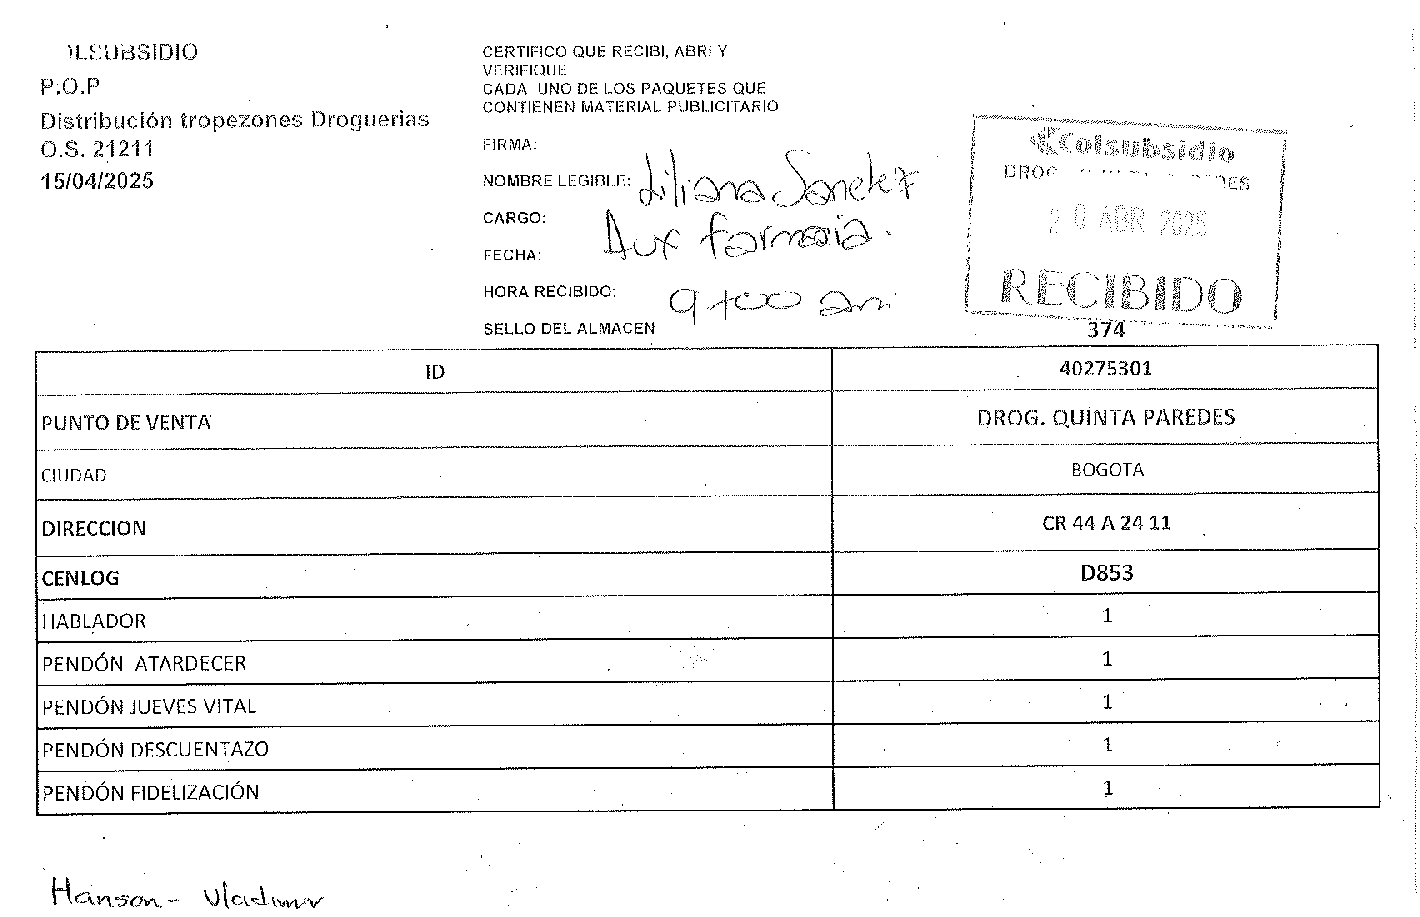 OLSUBSIDIO
P.O.P
Distribución tropezones Droguerias
O.S. 21211
15/04/2025
CERTIFICO QUE RECIBI, ABRI Y
VERIFIQUE
CADA UNO DE LOS PAQUETES QUE
CONTIENEN MATERIAL PUBLICITARIO
FIRMA:
NOMBRE LEGIBLE: Liliana Sanchez
CARGO: Aux farmacia.
FECHA:
HORA RECIBIDO: 9+00 am
SELLO DEL ALMACEN
Colsubsidio
DROG
20 ABR 2025
RECIBIDO
374
ID 40275301
PUNTO DE VENTA DROG. QUINTA PAREDES
CIUDAD BOGOTA
DIRECCION CR 44 A 24 11
CENLOG D853
HABLADOR 1
PENDÓN ATARDECER 1
PENDÓN JUEVES VITAL 1
PENDÓN DESCUENTAZO 1
PENDÓN FIDELIZACIÓN 1
Hanson - Vladimir